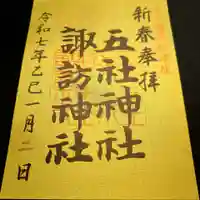 新春奉拝
五社神社
諏訪神社
令和七年乙巳一月二日